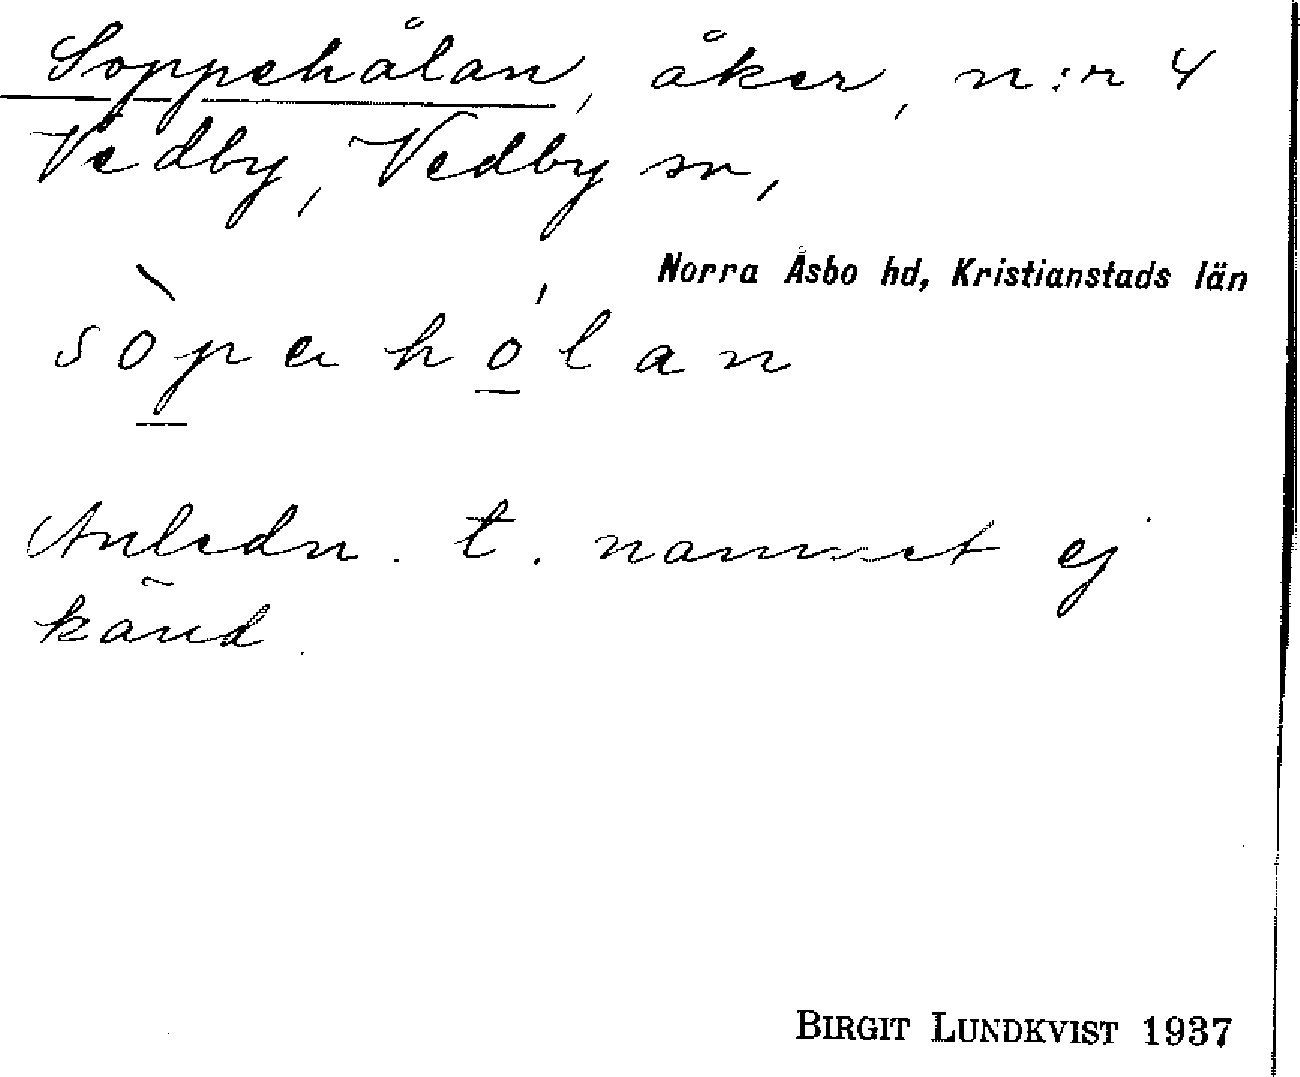 Soppehålan, åker, n:r 4
Vedby, Vedby sn,
Norra Åsbo hd, Kristianstads län
sòpahólan
Anledn. t. namnet ej
känd.
BIRGIT LUNDKVIST 1937